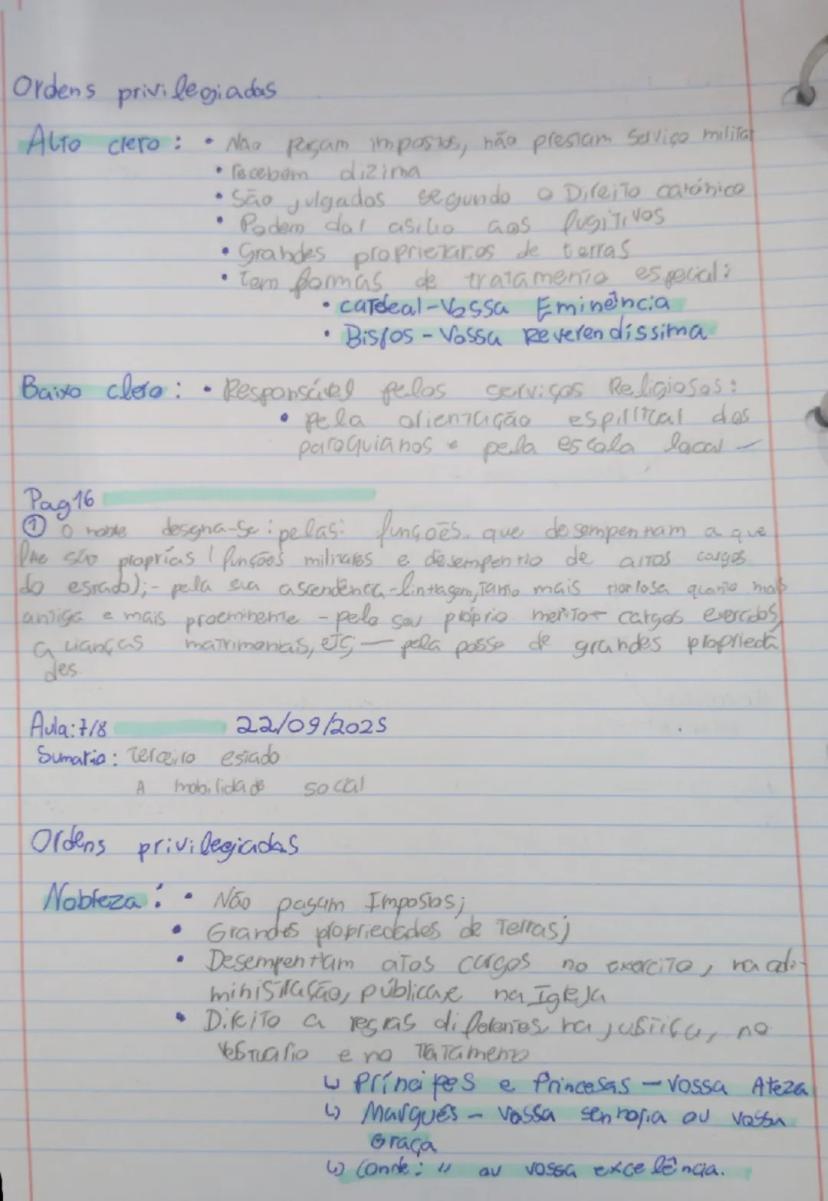 Ordens privilegiadas
Alto clero: • Não pagam impostos, não prestam Serviço militar
• recebem dízima
• São julgados segundo o Direito canónico
• Podem dar asilio aos fugitivos
• Grandes proprietaros de terras
• Tem formas de tratamento especial:
• cardeal - Vossa Eminência
• Bisfos - Vossa Reverendíssima
Baixo clero: • Responsável pelos serviços Religiosos:
• pela orientação espiritcal dos
paroquianos e pela escola local -
Pag 16
① O nobre designa-se: pelas: funções que desempenham a que
lhe são proprías (funções militares e desempenho de altos cargos
do estado); - pela sua ascendênca - linhagem, tanto mais quanto mas
antiga e mais proeminente - pelo seu próprio mérito - cargos exercidos,
a lianças matrimonias, etç — pela posse de grandes proprieda
des
Aula: 7/8 22/09/2025
Sumario: Terceiro estado
A mobilidade social
Ordens privilegiadas
Nobreza: • Não pagam Impostos;
• Grandes propriedades de Terras;
• Desempenham atos cargos no exercito, na ad-
ministração, públicae na Igreja
• Direito a regras diferentes na justiça, no
Vestuario e no Tratamento
↳ Príncipes e Princesas - Vossa Ateza
↳ Marquês - Vossa senhoria ou vossa
Graça
↳ Conde: " ou vossa excelência.